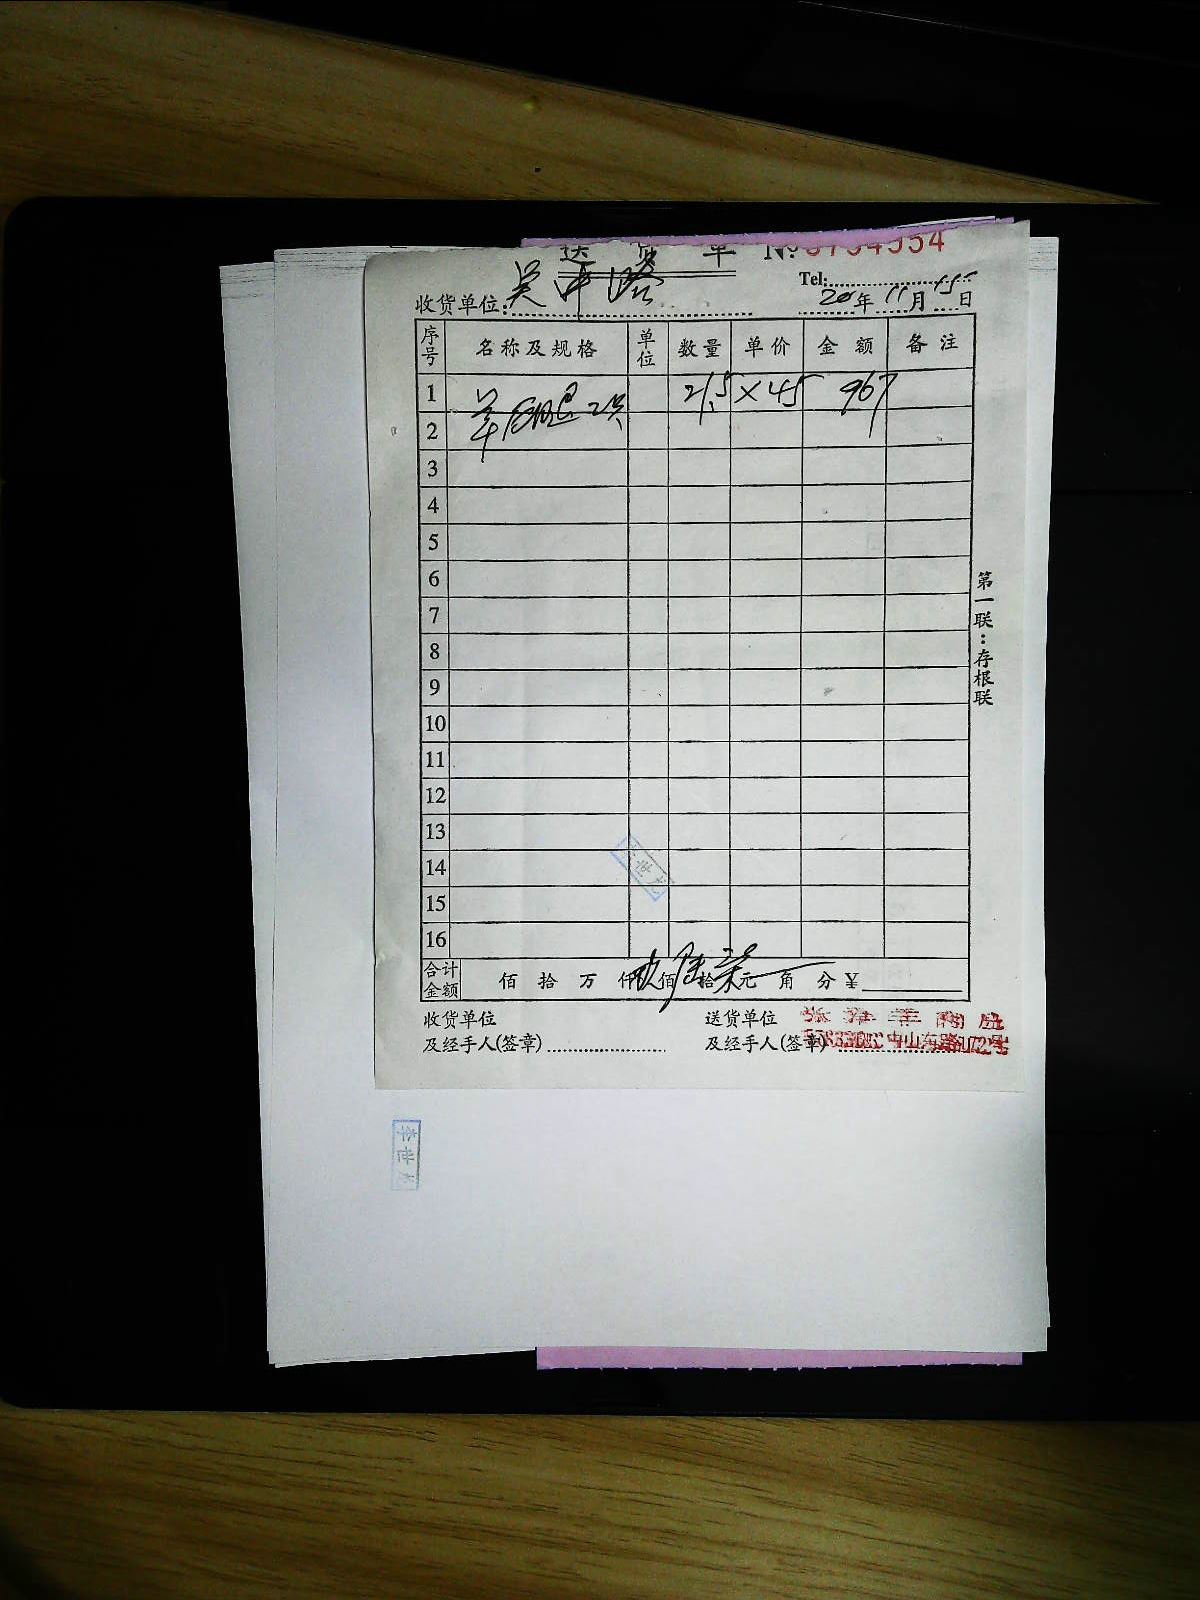 送 货 单 №
Tel:
收货单位:吴
20年11月15日
序号 名称及规格 单位 数量 单价 金额 备注
1 羊后腿2只 21.5 ×45 967
2
3
4
5
6
7
8
9
10
11
12
13
14
15
16
合计金额 佰 拾 万 仟 玖佰 陆拾 柒元 角 分 ¥
收货单位 送货单位
及经手人(签章) 及经手人(签章)
中山东路
第一联:存根联
李世龙